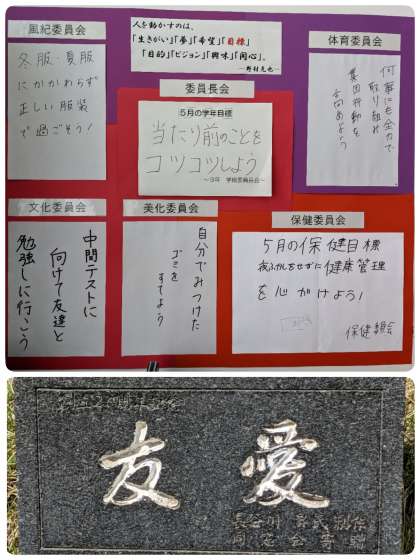 風紀委員会
冬服・夏服
にかかわらず
正しい服装
で過ごそう!
人を動かすのは、
「生きがい」「夢」「希望」「目標」
「目的」「ビジョン」「興味」「関心」。
委員長会
5月の学年目標
当たり前のことを
コツコツしよう
体育委員会
何事にも全力で
取り組み
集団行動を
文化委員会
中間テストに
向けて友達と
勉強しに行こう
美化委員会
自分でみつけた
ゴミを
すてよう
保健委員会
5月の保健目標
夜ふかしをせずに健康管理
を心がけよう!
保健委員会
友愛